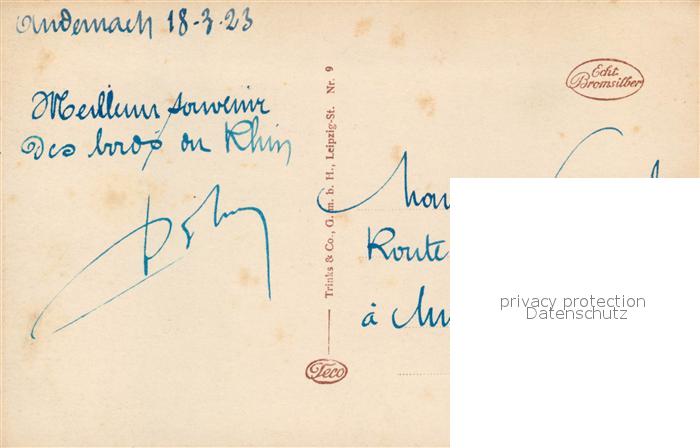 Andernach 18-3-23
Meilleur souvenir
Des bords du Rhin
Trinks & Co., G. m. b. H., Leipzig-St. Nr. 9
Teco
Echt
Bromsilber
Route
à
privacy protection
Datenschutz